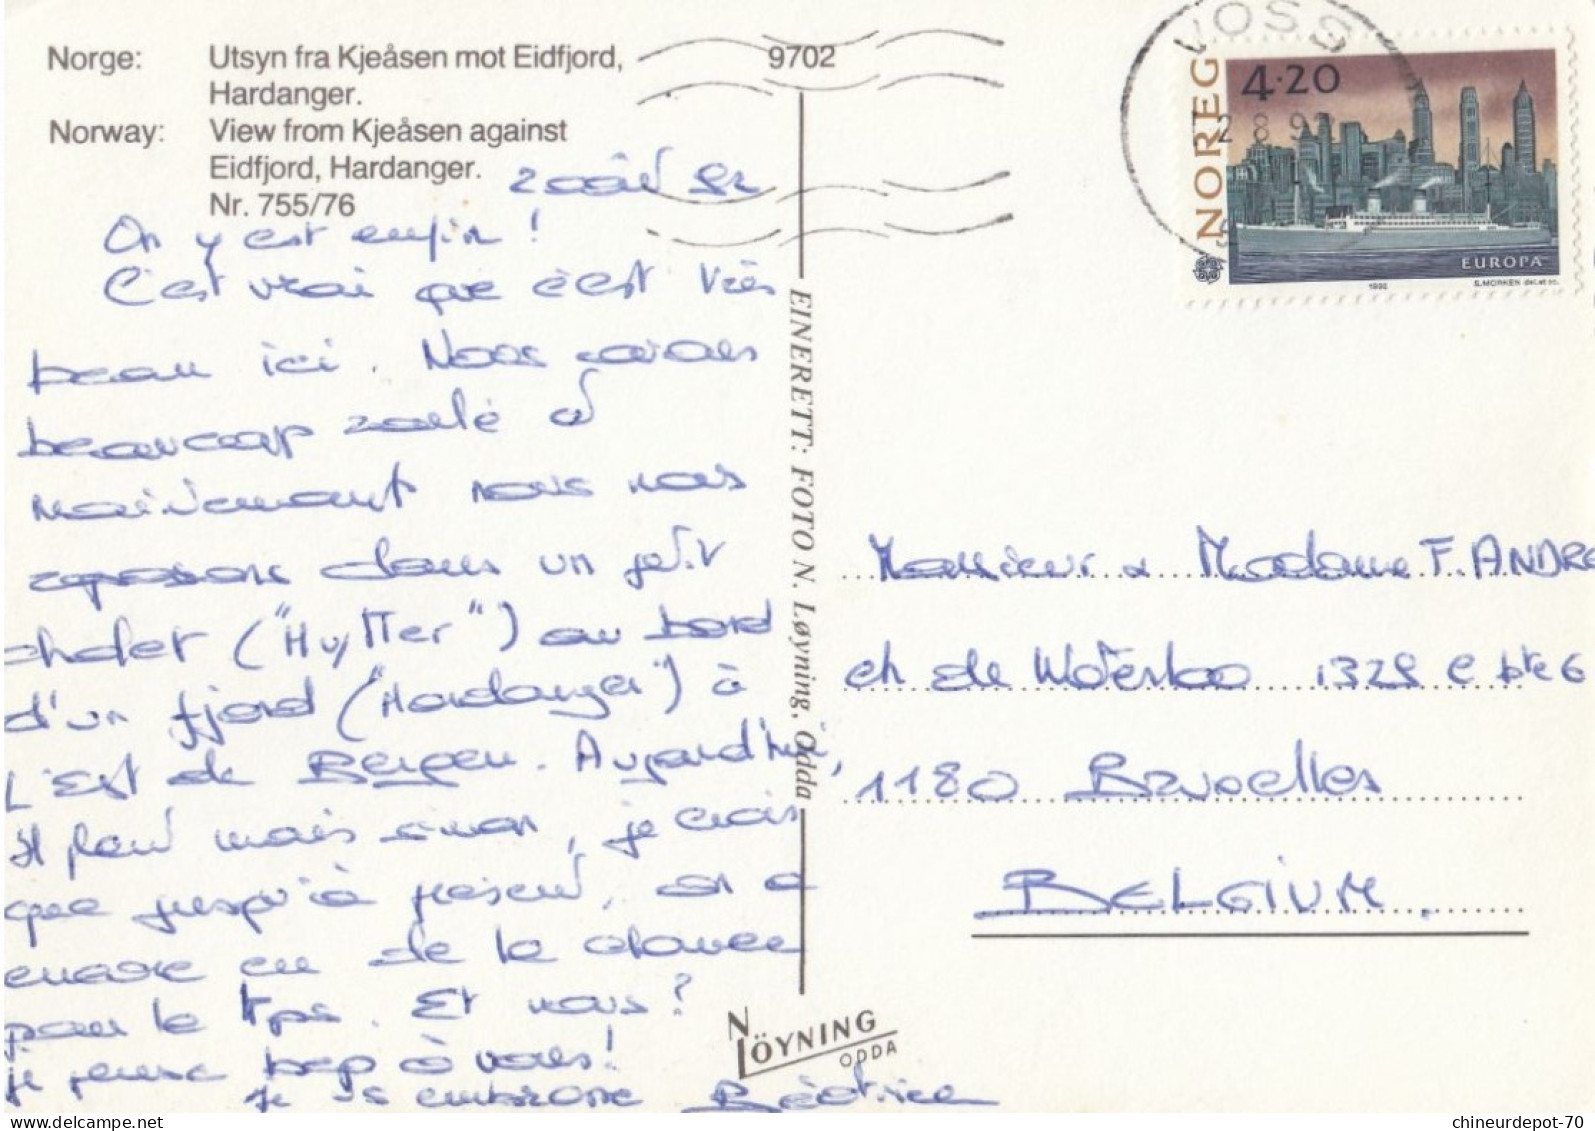 Norge: Utsyn fra Kjeåsen mot Eidfjord,
Hardanger.
Norway: View from Kjeåsen against
Eidfjord, Hardanger.
Nr. 755/76
9702
2 août 92
On y est enfin !
C'est vrai que c'est très
beau ici. Nous avons
beaucoup roulé &
maintenant nous nous
reposons dans un petit
chalet ("Hytter") au bord
d'un fjord ("Hardanger") à
L'Est de Bergen. Aujourd'hui,
il pleut mais sinon, je crois
que jusqu'à présent, on a
encore eu de la chance
pour le tps. Et vous ?
je pense bcp à vous !
Je vs embrasse Béatrice
EINERETT: FOTO N. Løyning, Odda
N LÖYNING
ODDA
VOSS
2 8 9
NOREG
4·20
EUROPA
1992
S.MORKEN del.et sc.
Monsieur & Madame F. ANDRE
ch de Waterloo 1329 C bte 6
1180 Bruxelles
BELGIUM.
chineurdepot-70